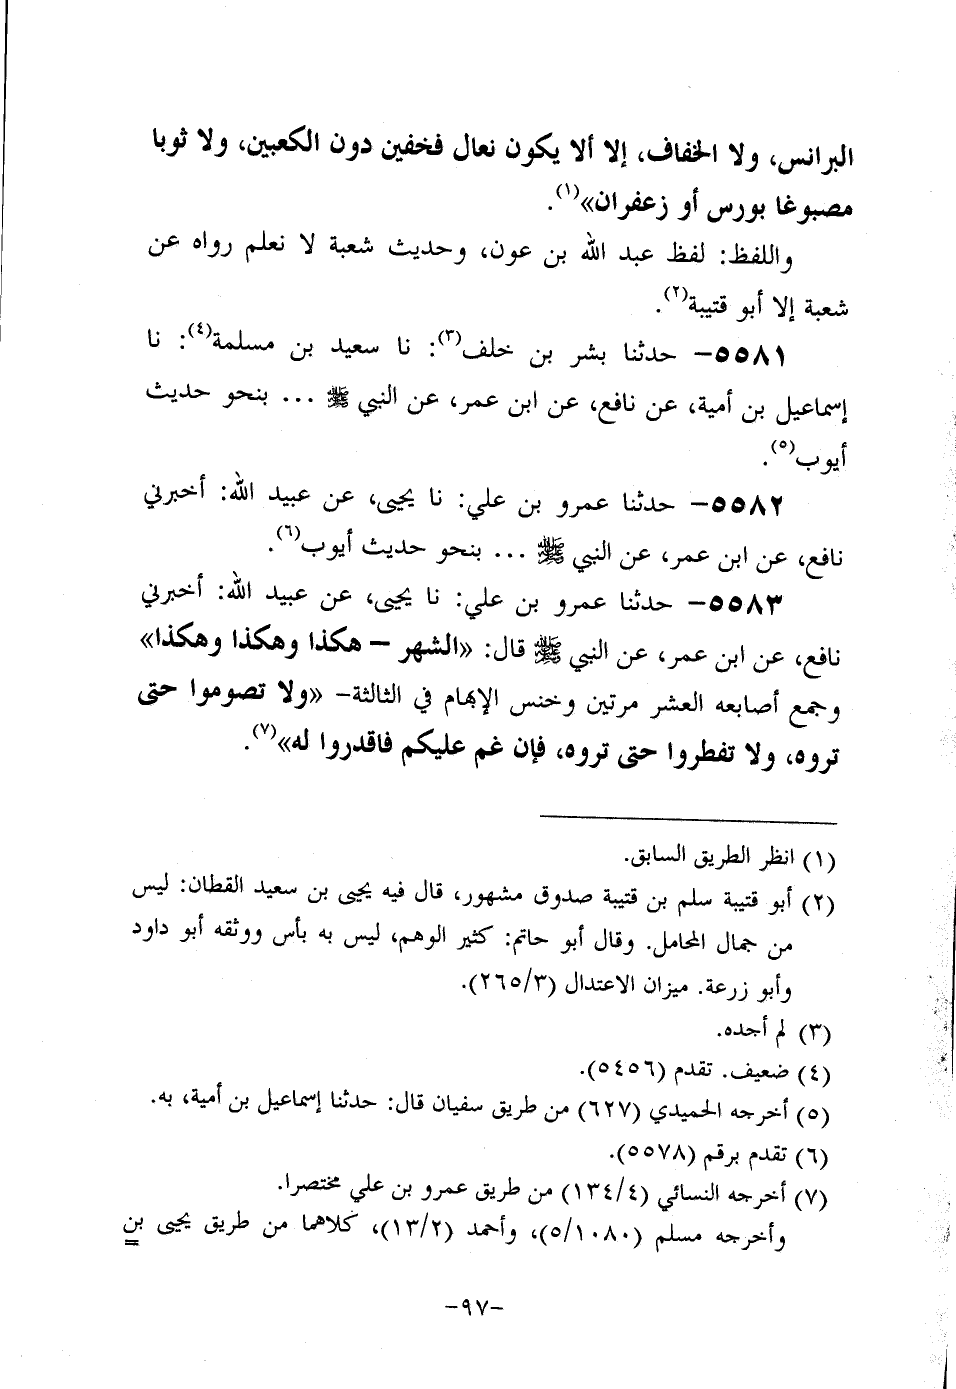 البرانس، ولا الخفاف، إلا ألا يكون نعال فخفين دون الكعبين، ولا ثوبا
مصبوغا بورس أو زعفران»(١).
واللفظ: لفظ عبد الله بن عون، وحديث شعبة لا نعلم رواه عن
شعبة إلا أبو قتيبة(٢).
٥٥٨١– حدثنا بشر بن خلف(٣): نا سعيد بن مسلمة(٤): نا
إسماعيل بن أمية، عن نافع، عن ابن عمر، عن النبي ﷺ ... بنحو حديث
أيوب(٥).
٥٥٨٢– حدثنا عمرو بن علي: نا يحيى، عن عبيد الله: أخبرني
نافع، عن ابن عمر، عن النبي ﷺ ... بنحو حديث أيوب(٦).
٥٥٨٣– حدثنا عمرو بن علي: نا يحيى، عن عبيد الله: أخبرني
نافع، عن ابن عمر، عن النبي ﷺ قال: «الشهر – هكذا وهكذا وهكذا»
وجمع أصابعه العشر مرتين وخنس الإبهام في الثالثة– «ولا تصوموا حتى
تروه، ولا تفطروا حتى تروه، فإن غم عليكم فاقدروا له»(٧).
(١) انظر الطريق السابق.
(٢) أبو قتيبة سلم بن قتيبة صدوق مشهور، قال فيه يحيى بن سعيد القطان: ليس
من جمال المحامل. وقال أبو حاتم: كثير الوهم، ليس به بأس ووثقه أبو داود
وأبو زرعة. ميزان الاعتدال (٢٦٥/٣).
(٣) لم أجده.
(٤) ضعيف. تقدم (٥٤٥٦).
(٥) أخرجه الحميدي (٦٢٧) من طريق سفيان قال: حدثنا إسماعيل بن أمية، به.
(٦) تقدم برقم (٥٥٧٨).
(٧) أخرجه النسائي (١٣٤/٤) من طريق عمرو بن علي مختصرا.
وأخرجه مسلم (٥/١٠٨٠)، وأحمد (١٣/٢)، كلاهما من طريق يحيى بن
–٩٧–